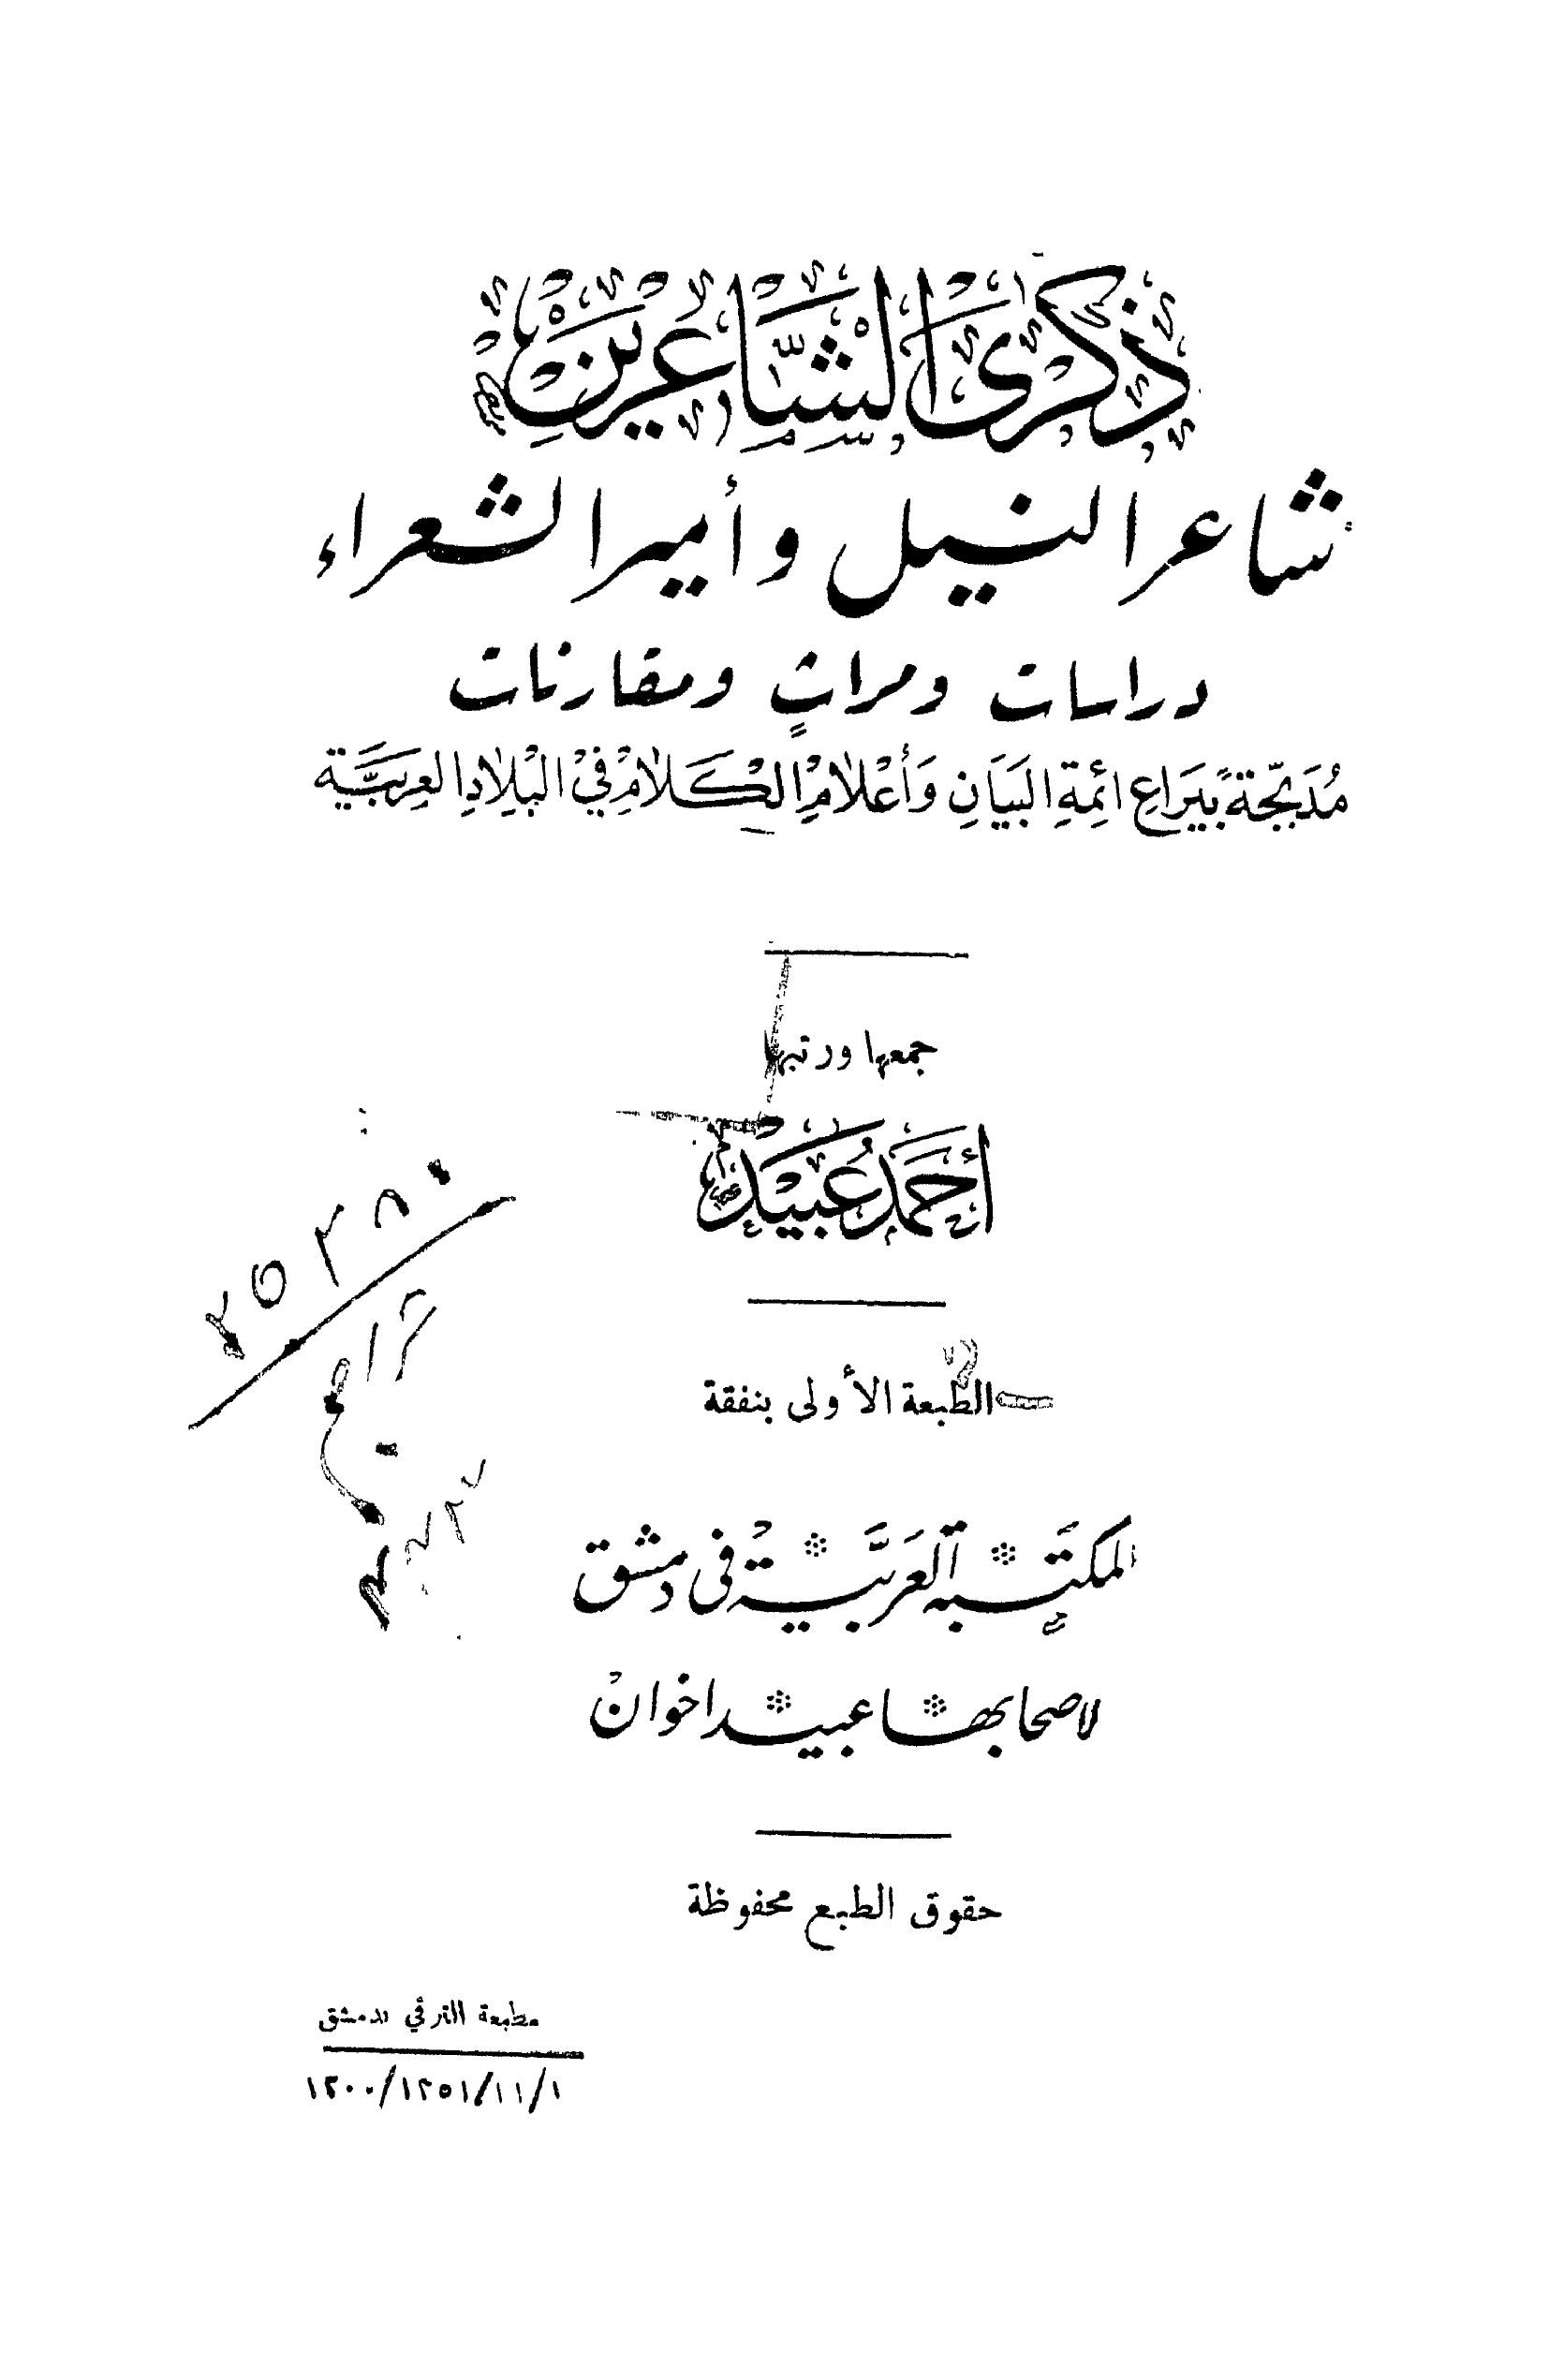 ذكرى الشاعرين
شاعر النيل وأمير الشعراء
دراسات ومراثٍ ومقارنات
مُدَبَّجة بيَرَاعِ ائِمةِ البَيَانِ وَأعْلامِ الكَلامِ فِي البْلِادِ العرَبَيَّة
جمعها ورتبها
أَحْمَد عُبَيْد
٢٥٢٨٠
الطبعة الأولى بنفقة
المكتبة العَرَبيَّة في دمشق
لاصحابها عبيد اخوان
حقوق الطبع محفوظة
مطبعة الترقي بدمشق
١٢٠٠/١٣٥١/١١/١